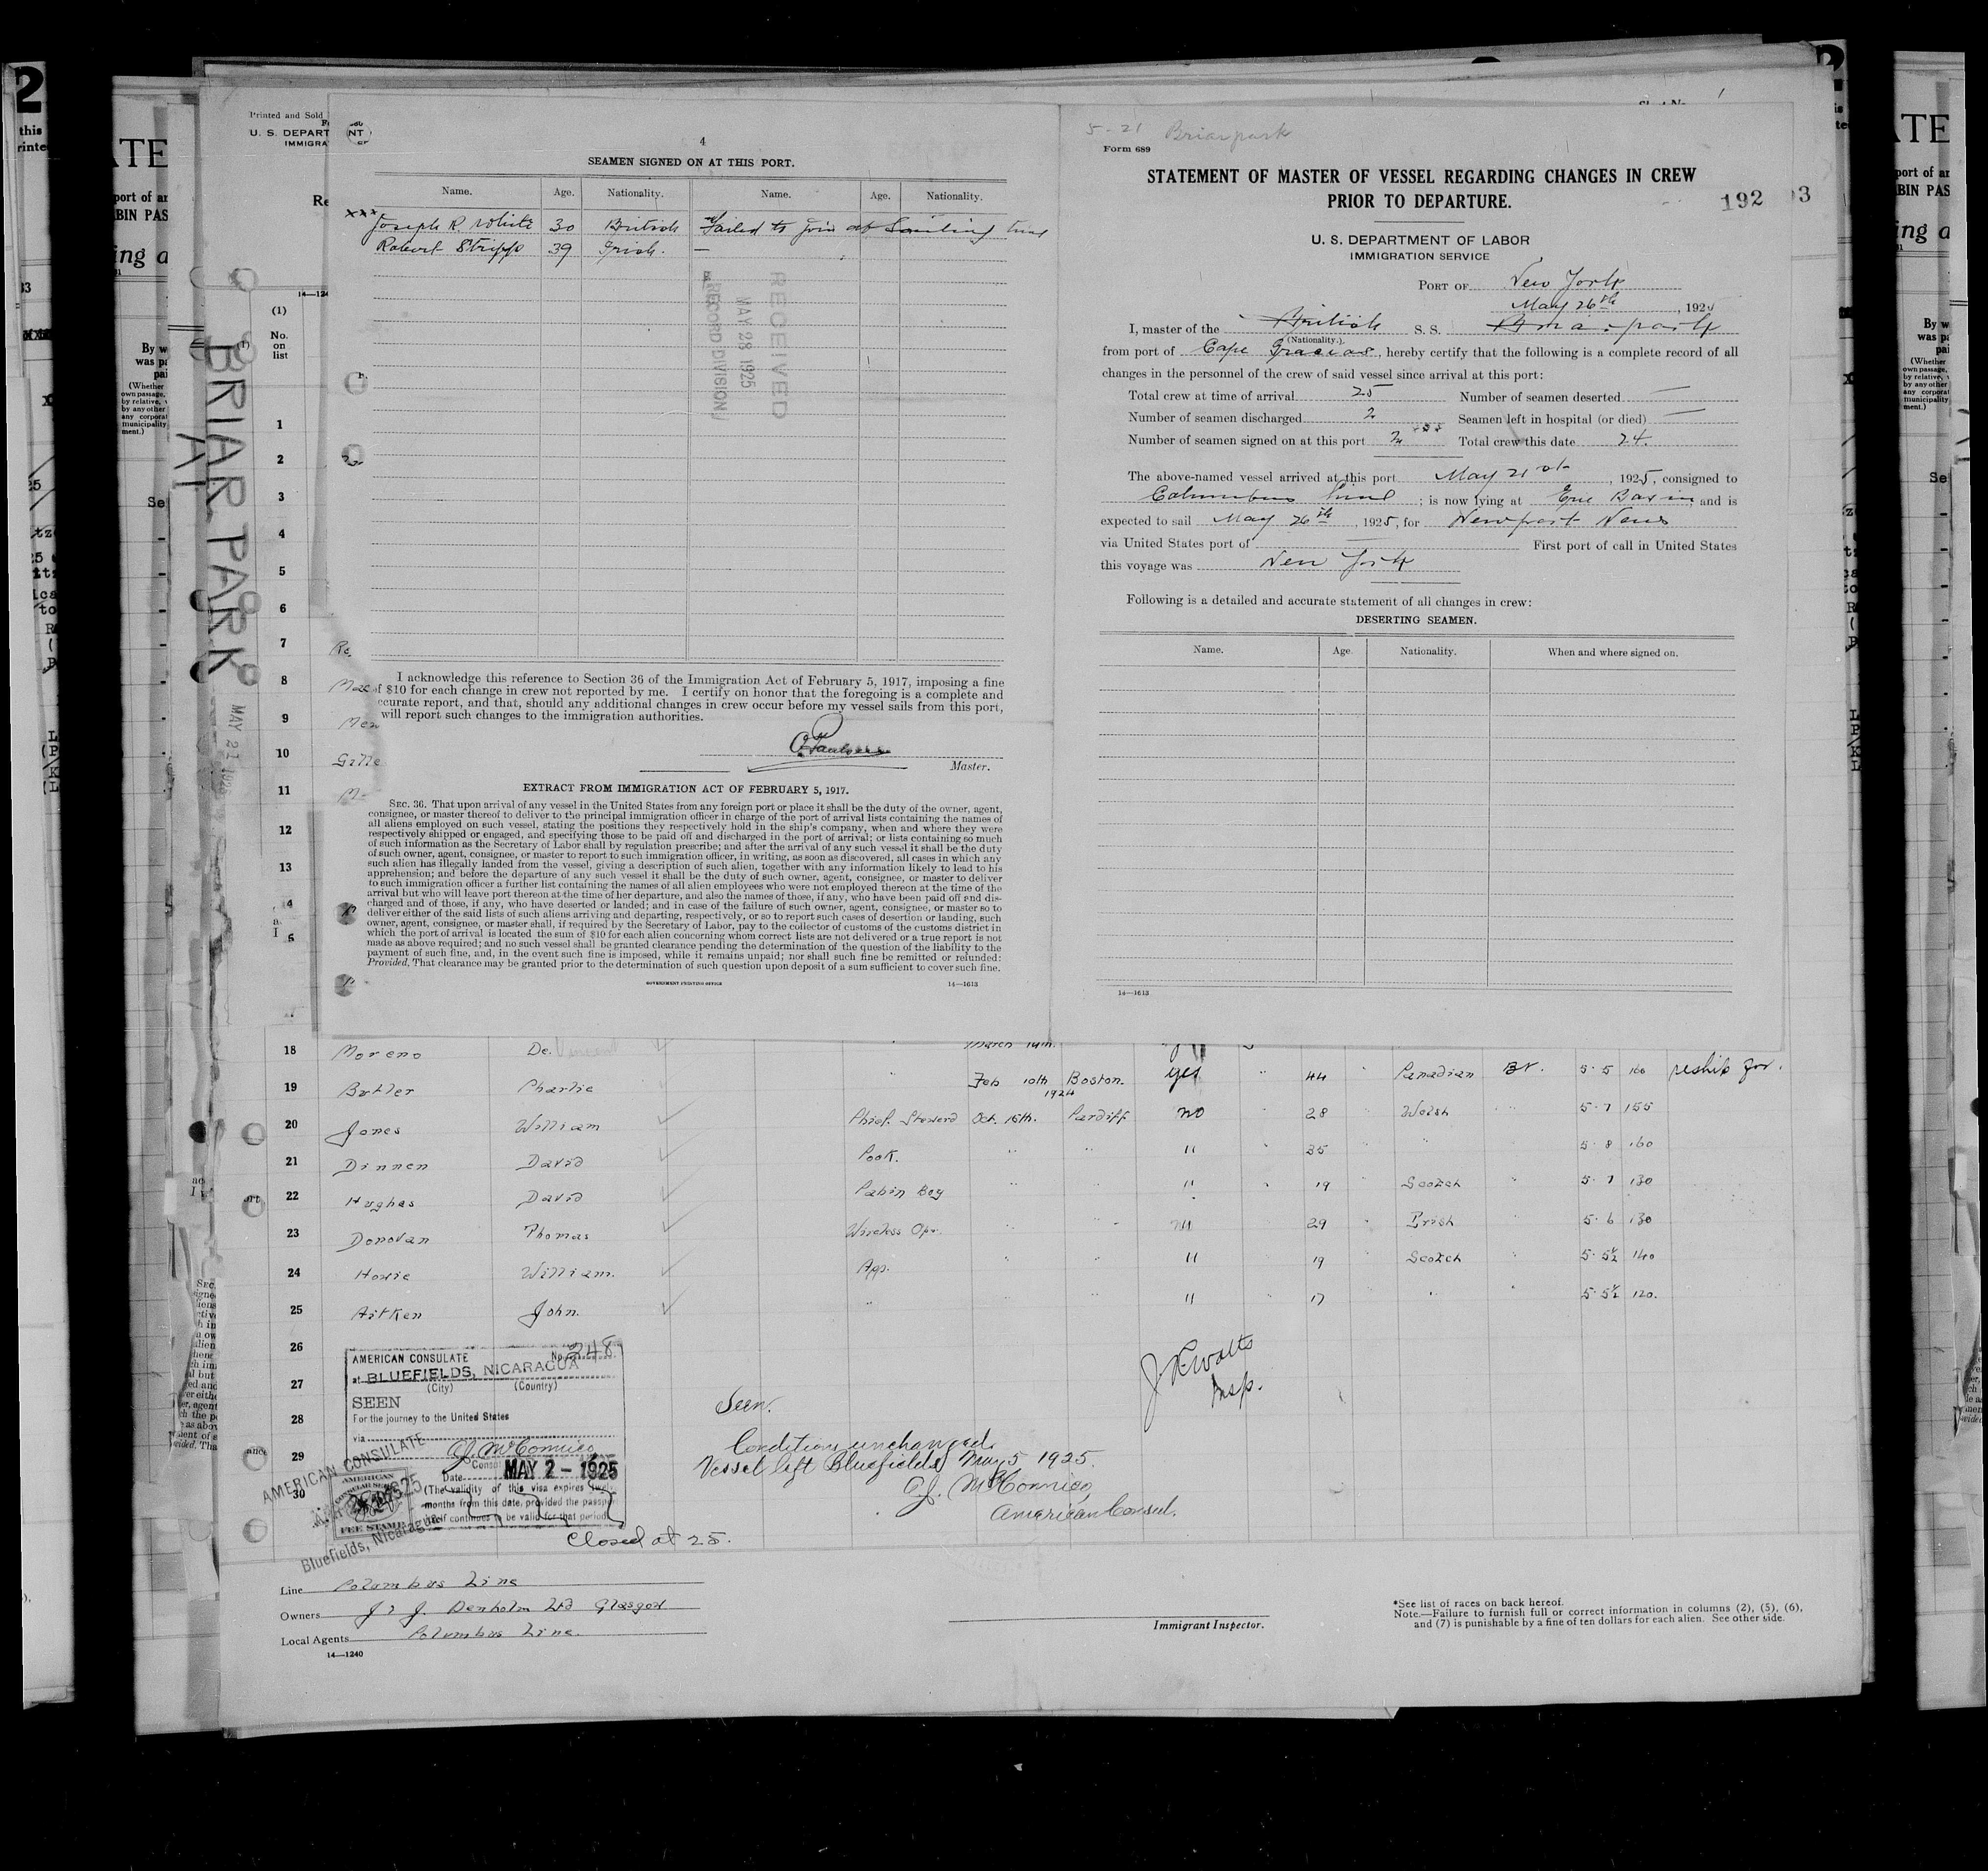 Printed and Sold
U. S. DEPART
IMMIGRA
4
SEAMEN SIGNED ON AT THIS PORT.
Name. Age. Nationality. Name. Age. Nationality.
xxx Joseph R White 30 British Failed to join at Sailing time
Robert 39 Irish. —
RECEIVED
MAY 28 1925
RECORD DIVISION
I acknowledge this reference to Section 36 of the Immigration Act of February 5, 1917, imposing a fine
of $10 for each change in crew not reported by me. I certify on honor that the foregoing is a complete and
ccurate report, and that, should any additional changes in crew occur before my vessel sails from this port,
will report such changes to the immigration authorities.
Master.
EXTRACT FROM IMMIGRATION ACT OF FEBRUARY 5, 1917.
SEC. 36. That upon arrival of any vessel in the United States from any foreign port or place it shall be the duty of the owner, agent,
consignee, or master thereof to deliver to the principal immigration officer in charge of the port of arrival lists containing the names of
all aliens employed on such vessel, stating the positions they respectively hold in the ship's company, when and where they were
respectively shipped or engaged, and specifying those to be paid off and discharged in the port of arrival; or lists containing so much
of such information as the Secretary of Labor shall by regulation prescribe; and after the arrival of any such vessel it shall be the duty
of such owner, agent, consignee, or master to report to such immigration officer, in writing, as soon as discovered, all cases in which any
such alien has illegally landed from the vessel, giving a description of such alien, together with any information likely to lead to his
apprehension; and before the departure of any such vessel it shall be the duty of such owner, agent, consignee, or master to deliver
to such immigration officer a further list containing the names of all alien employees who were not employed thereon at the time of the
arrival but who will leave port thereon at the time of her departure, and also the names of those, if any, who have been paid off and dis-
charged and of those, if any, who have deserted or landed; and in case of the failure of such owner, agent, consignee, or master so to
deliver either of the said lists of such aliens arriving and departing, respectively, or so to report such cases of desertion or landing, such
owner, agent, consignee, or master shall, if required by the Secretary of Labor, pay to the collector of customs of the customs district in
which the port of arrival is located the sum of $10 for each alien concerning whom correct lists are not delivered or a true report is not
made as above required; and no such vessel shall be granted clearance pending the determination of the question of the liability to the
payment of such fine, and, in the event such fine is imposed, while it remains unpaid; nor shall such fine be remitted or refunded:
Provided, That clearance may be granted prior to the determination of such question upon deposit of a sum sufficient to cover such fine.
GOVERNMENT PRINTING OFFICE 14—1613
5-21 Briarpark
Form 689
STATEMENT OF MASTER OF VESSEL REGARDING CHANGES IN CREW
PRIOR TO DEPARTURE.
192 3
U. S. DEPARTMENT OF LABOR
IMMIGRATION SERVICE
PORT OF New York
May 26th, 1925
I, master of the British S. S. Briarpark
(Nationality.)
from port of Cape Gracias, hereby certify that the following is a complete record of all
changes in the personnel of the crew of said vessel since arrival at this port:
Total crew at time of arrival 25 Number of seamen deserted —
Number of seamen discharged 2 Seamen left in hospital (or died) —
Number of seamen signed on at this port 2 xxx Total crew this date 24.
The above-named vessel arrived at this port May 21st, 1925, consigned to
Columbus Line; is now lying at Erie Basin, and is
expected to sail May 26th, 1925, for Newport News
via United States port of — First port of call in United States
this voyage was New York
Following is a detailed and accurate statement of all changes in crew:
DESERTING SEAMEN.
Name. Age. Nationality. When and where signed on.
14—1613
BRIARPARK
MAY 21 1925
(1)
No.
on
list
1
2
3
4
5
6
7
8
9
10
11
12
13
18 Moreno De. Vincent March 19th.
19 Butler Charlie Feb 10th 1924 Boston. yes 44 Canadian Br. 5 5 160 reship for.
20 Jones William Chief Steward Oct. 15th. Cardiff no 28 Welsh 5 7 155
21 Dinnen David Cook. " " 11 35 " 5 8 160
22 Hughes David Cabin Boy " " 11 19 Scotch 5 7 130
23 Donovan Thomas Wireless Opr. " " 29 Irish 5 6 130
24 Howie William. App. " " 11 19 Scotch 5 5½ 140
25 Aitken John. " 11 17 " 5 5½ 120.
26
27
28
29
30
AMERICAN CONSULATE No. 248
at BLUEFIELDS, NICARAGUA
(City) (Country)
SEEN
For the journey to the United States
via
Date MAY 2 - 1925
(The validity of this visa expires twelve
months from this date, provided the passport
itself continues to be valid for that period)
AMERICAN CONSULATE
Bluefields, Nicaragua
AMERICAN
CONSULAR SERVICE
FEE STAMP
J K Watts
Insp.
Seen.
Conditions unchanged.
Vessel left Bluefields May 5 1925.
A.J. McConnico,
American Consul.
Closed at 25.
Line Columbus Line
Owners J & J. Denholm Ltd Glasgow
Local Agents Columbus Line.
14—1240
Immigrant Inspector.
*See list of races on back hereof.
Note.—Failure to furnish full or correct information in columns (2), (5), (6),
and (7) is punishable by a fine of ten dollars for each alien. See other side.